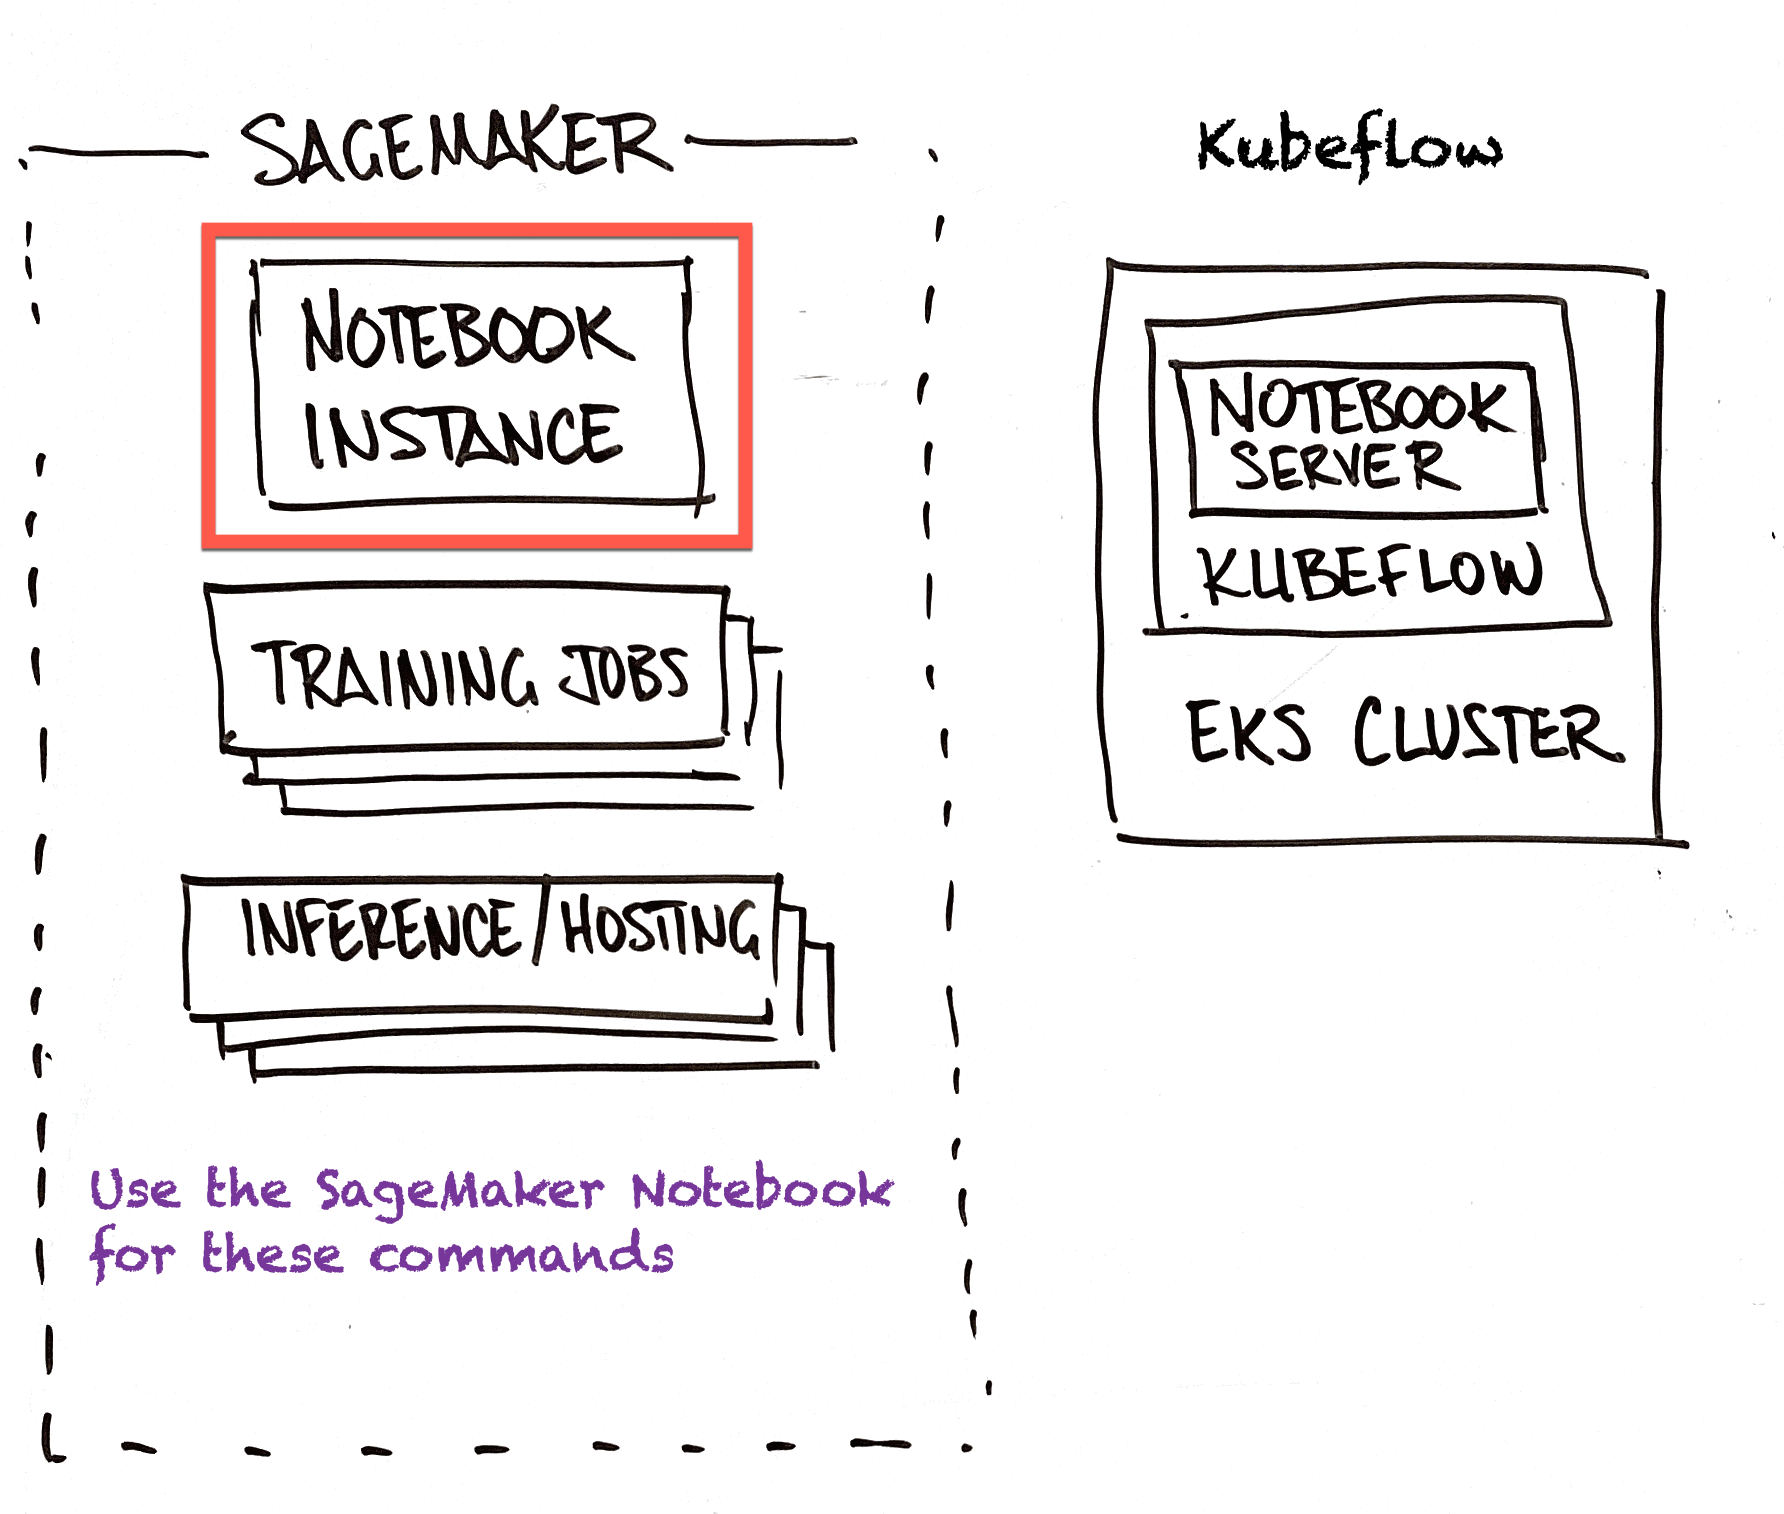 SAGEMAKER
NOTEBOOK
INSTANCE
TRAINING JOBS
INFERENCE/HOSTING
Use the SageMaker Notebook
for these commands
Kubeflow
NOTEBOOK
SERVER
KUBEFLOW
EKS CLUSTER